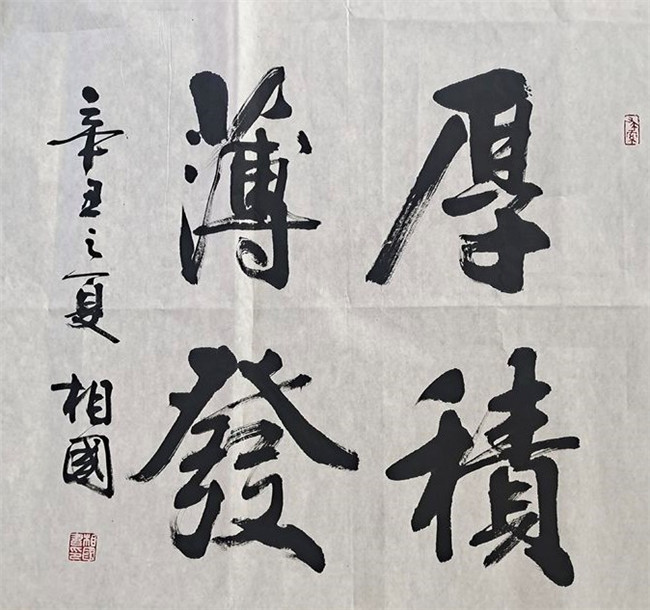 厚積
薄發
辛丑之夏 相國